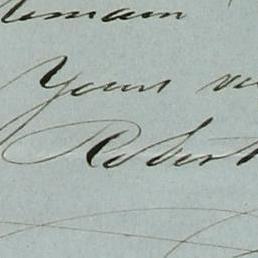 remain
Yours
Robert